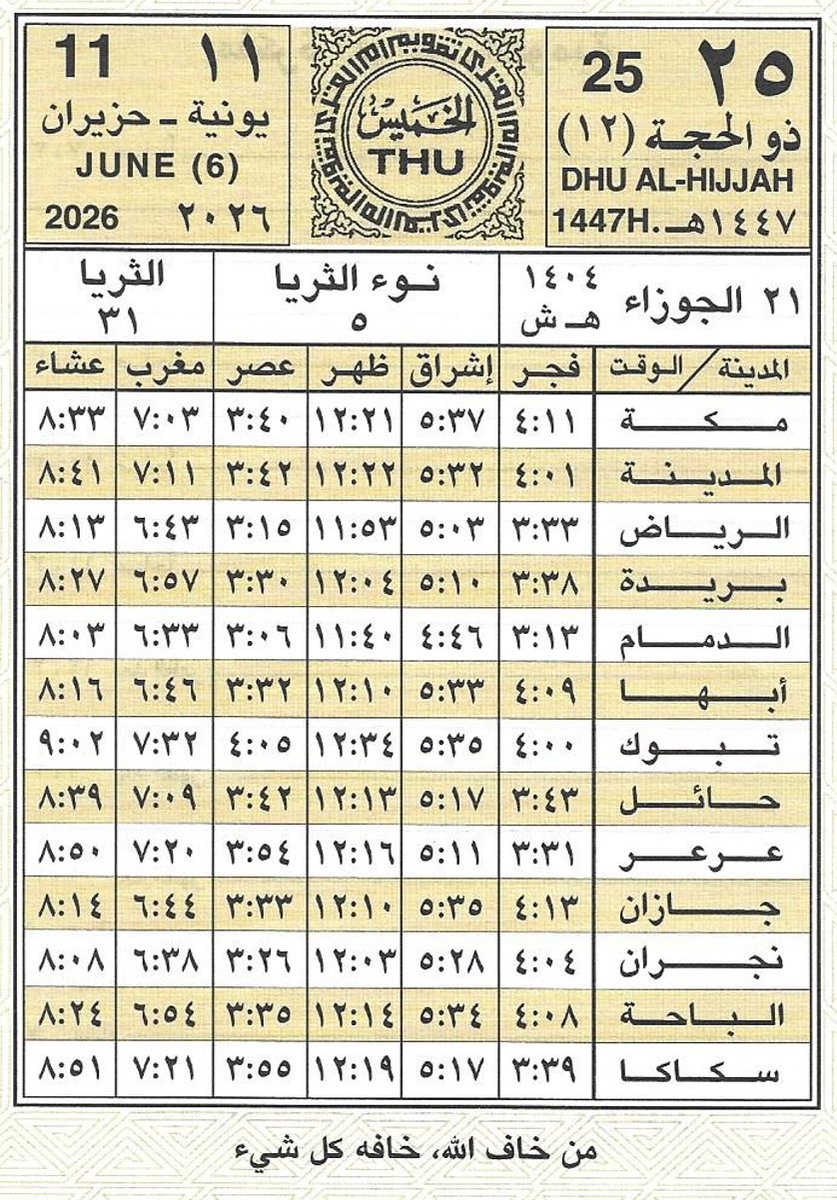 ٢٥ 25
ذو الحجة (١٢)
DHU AL-HIJJAH
١٤٤٧هـ .1447H
الخميس
THU
١١ 11
يونية - حزيران
JUNE (6)
٢٠٢٦ 2026
٢١ الجوزاء ١٤٠٤ هـ ش
نوء الثريا
٥
الثريا
٣١
المدينة / الوقت فجر إشراق ظهر عصر مغرب عشاء
مكة ٤:١١ ٥:٣٧ ١٢:٢١ ٣:٤٠ ٧:٠٣ ٨:٣٣
المدينة ٤:٠١ ٥:٣٢ ١٢:٢٢ ٣:٤٢ ٧:١١ ٨:٤١
الرياض ٣:٣٣ ٥:٠٣ ١١:٥٣ ٣:١٥ ٦:٤٣ ٨:١٣
بريدة ٣:٣٨ ٥:١٠ ١٢:٠٤ ٣:٣٠ ٦:٥٧ ٨:٢٧
الدمام ٣:١٣ ٤:٤٦ ١١:٤٠ ٣:٠٦ ٦:٣٣ ٨:٠٣
أبها ٤:٠٩ ٥:٣٣ ١٢:١٠ ٣:٣٢ ٦:٤٦ ٨:١٦
تبوك ٤:٠٠ ٥:٣٥ ١٢:٣٤ ٤:٠٥ ٧:٣٢ ٩:٠٢
حائل ٣:٤٣ ٥:١٧ ١٢:١٣ ٣:٤٢ ٧:٠٩ ٨:٣٩
عرعر ٣:٣١ ٥:١١ ١٢:١٦ ٣:٥٤ ٧:٢٠ ٨:٥٠
جازان ٤:١٣ ٥:٣٥ ١٢:١٠ ٣:٣٣ ٦:٤٤ ٨:١٤
نجران ٤:٠٤ ٥:٢٨ ١٢:٠٣ ٣:٢٦ ٦:٣٨ ٨:٠٨
الباحة ٤:٠٨ ٥:٣٤ ١٢:١٤ ٣:٣٥ ٦:٥٤ ٨:٢٤
سكاكا ٣:٣٩ ٥:١٧ ١٢:١٩ ٣:٥٥ ٧:٢١ ٨:٥١
من خاف الله، خافه كل شيء